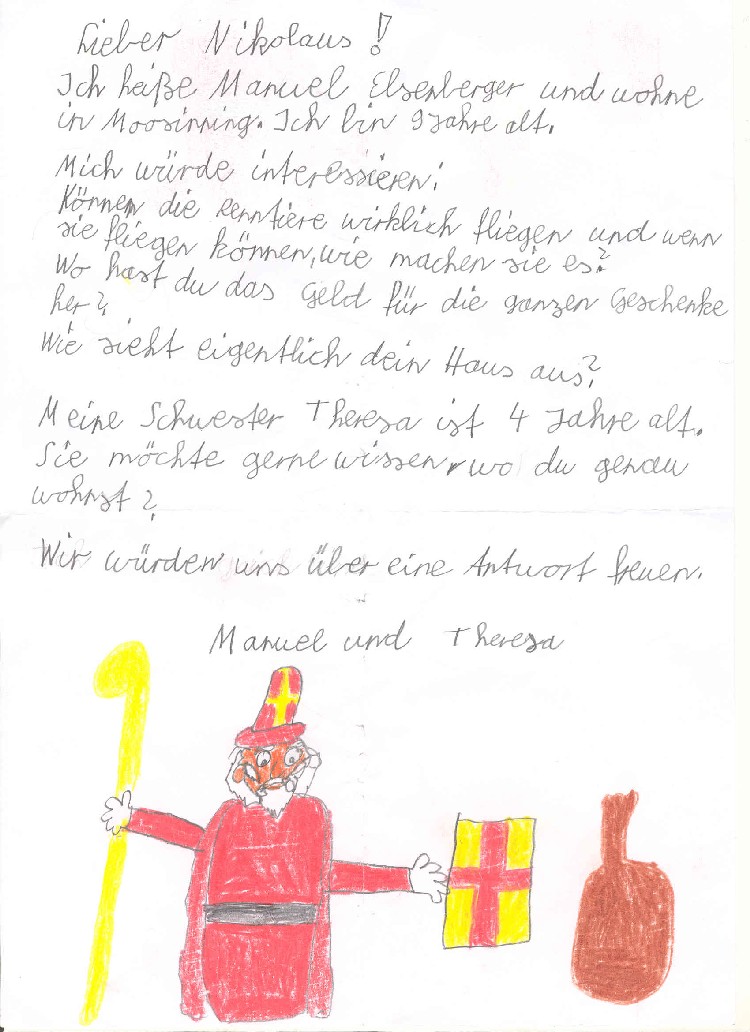 Lieber Nikolaus!
Ich heiße Manuel Elsenberger und wohne
in Moosinning. Ich bin 9 Jahre alt.
Mich würde interessieren:
Können die Renntiere wirklich fliegen und wenn
sie fliegen können, wie machen sie es?
Wo hast du das Geld für die ganzen Geschenke
her?
Wie sieht eigentlich dein Haus aus?
Meine Schwester Theresa ist 4 Jahre alt.
Sie möchte gerne wissen, wo du genau
wohnst?
Wir würden uns über eine Antwort freuen.
Manuel und Theresa